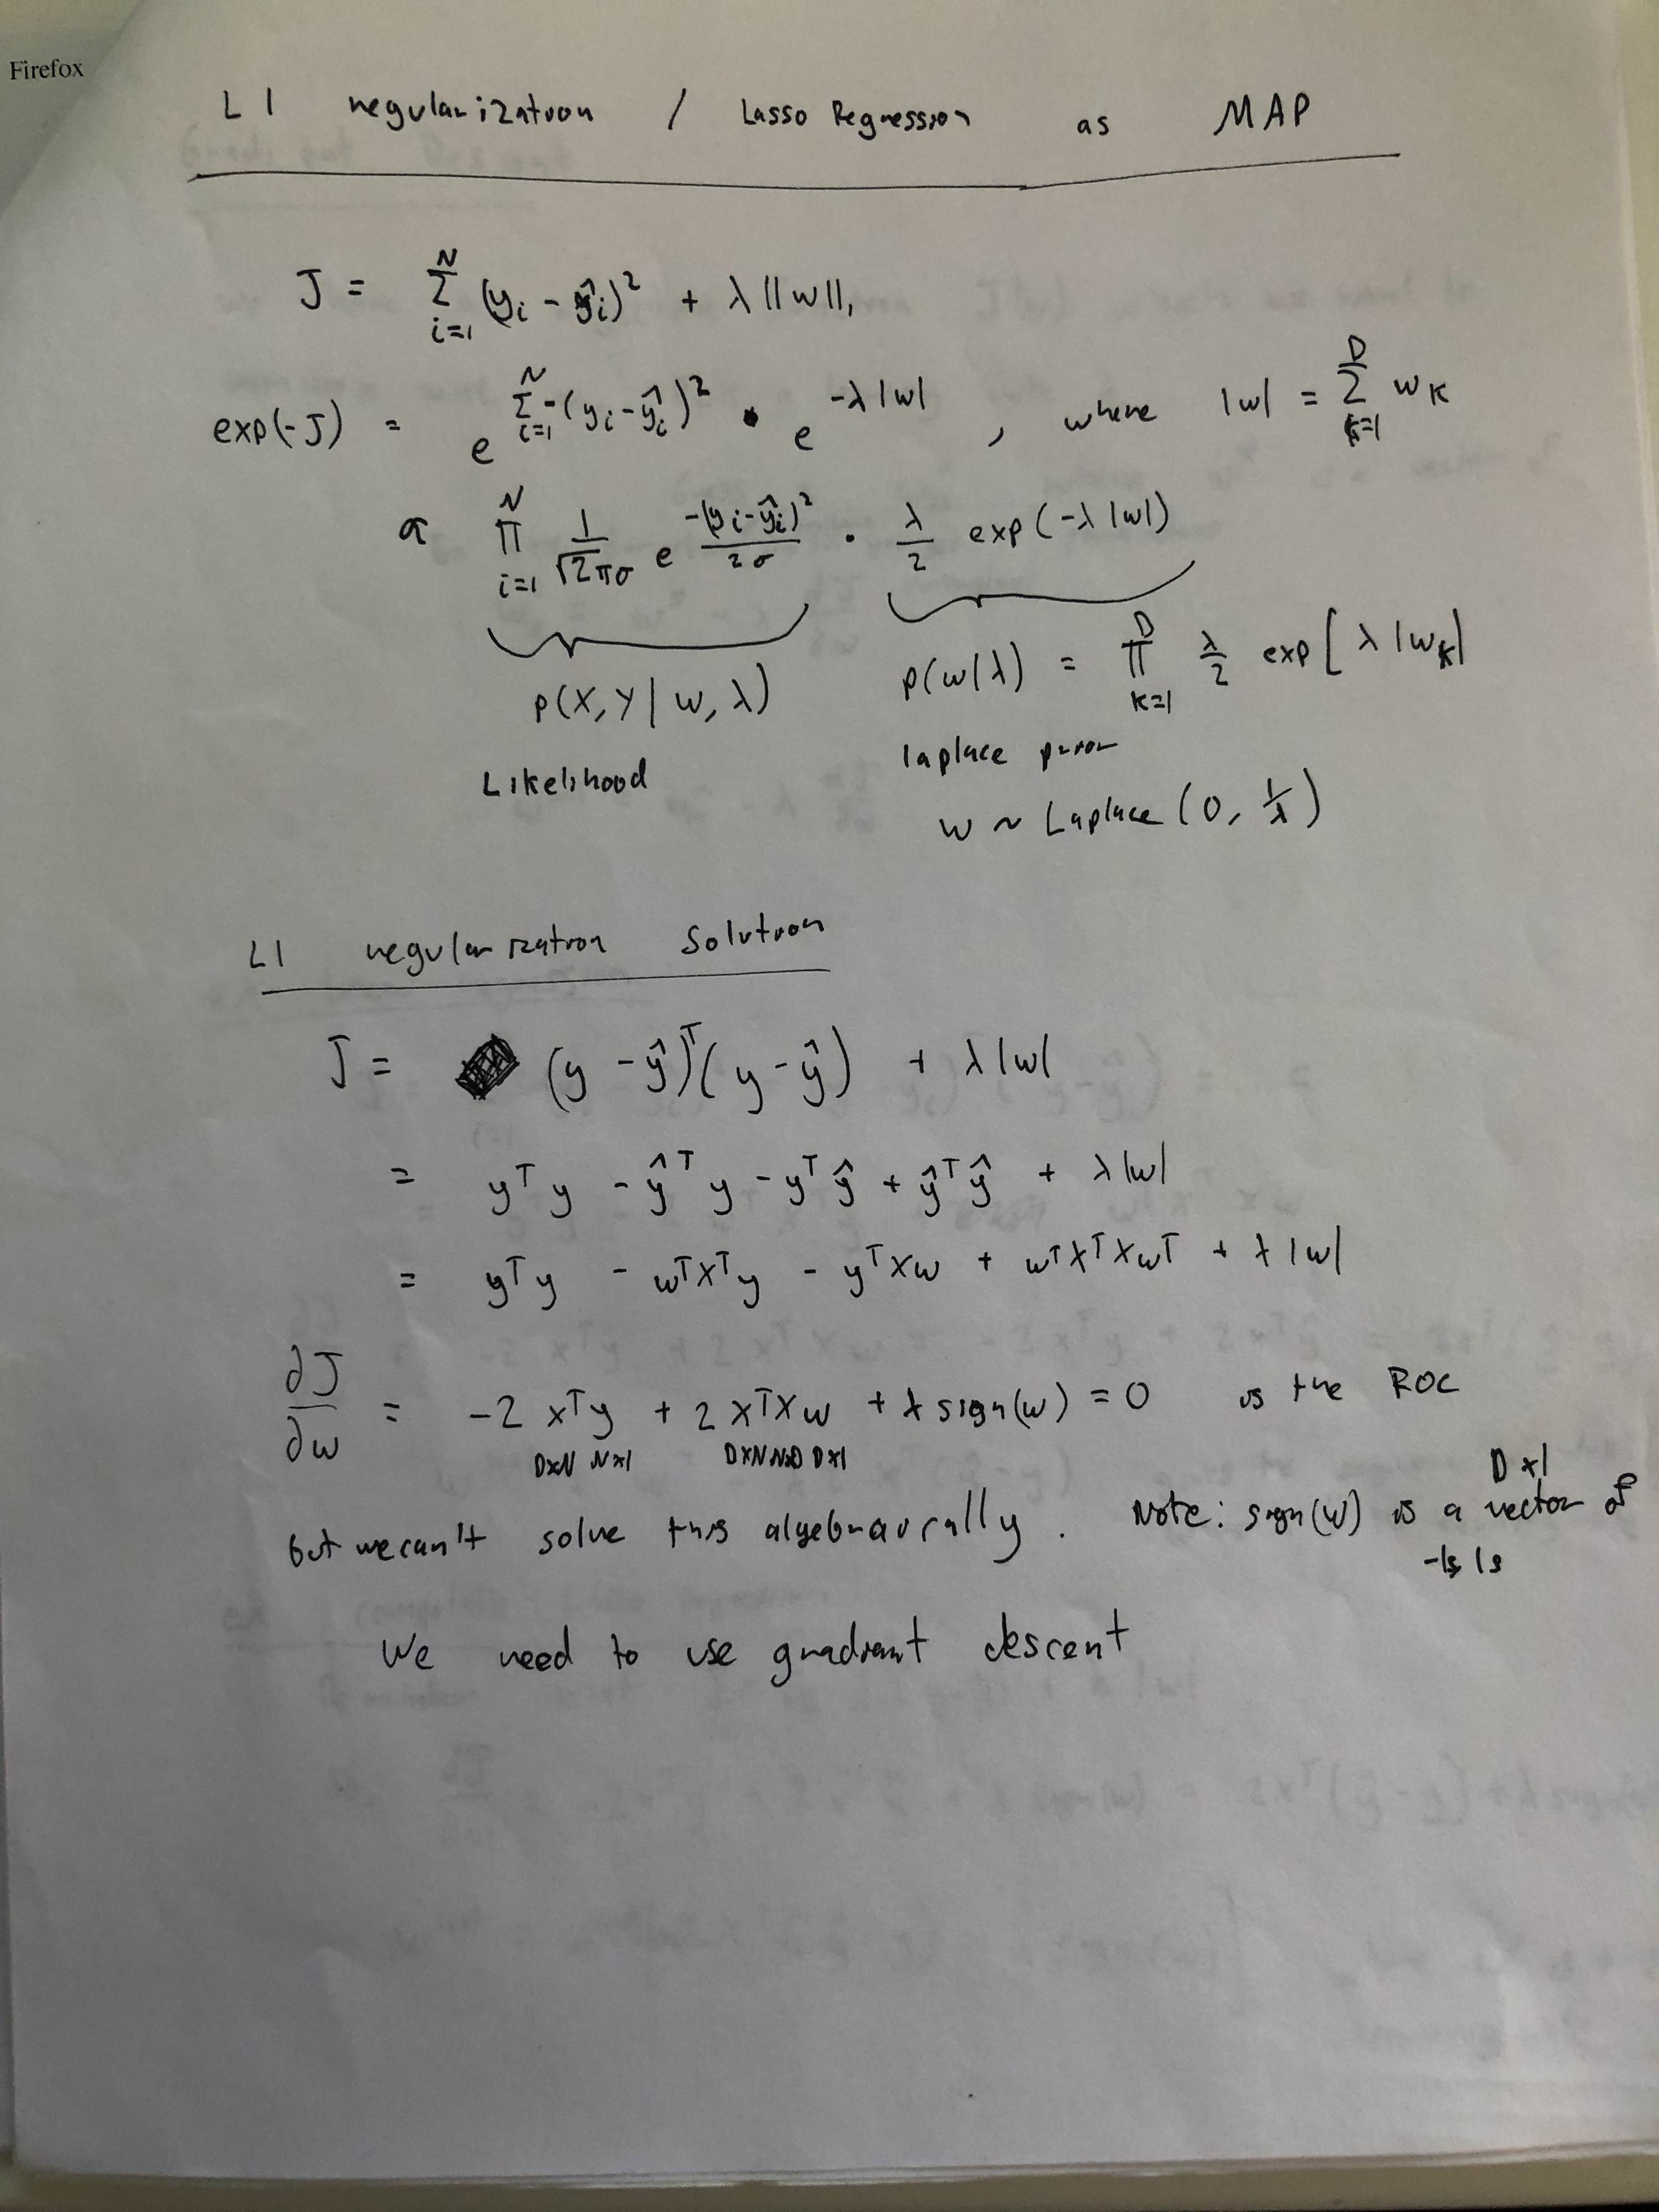 Firefox
L1 regularization / Lasso Regression as MAP
J = Σ_{i=1}^{N} (y_i - ŷ_i)² + λ ||w||₁
exp(-J) = e^{Σ_{i=1}^{N} -(y_i - ŷ_i)²} • e^{-λ|w|} , where |w| = Σ_{k=1}^{D} w_k
α Π_{i=1}^{N} 1/(√2πσ) e^{-(y_i - ŷ_i)²/2σ} • λ/2 exp(-λ|w|)
p(X, Y | w, λ) p(w|λ) = Π_{k=1}^{D} λ/2 exp[λ|w_k|
Likelihood laplace prior
w ~ Laplace(0, 1/λ)
L1 regularization Solution
J = (y - ŷ)ᵀ(y - ŷ) + λ|w|
= yᵀy - ŷᵀy - yᵀŷ + ŷᵀŷ + λ|w|
= yᵀy - wᵀXᵀy - yᵀXw + wᵀXᵀXwᵀ + λ|w|
∂J/∂w = -2 Xᵀy + 2 XᵀXw + λ sign(w) = 0 is the ROC
DxN Nx1 DxN NxD Dx1
but we can't solve this algebraically. Note: sign(w) is a Dx1 vector of
-1s, 1s
We need to use gradient descent